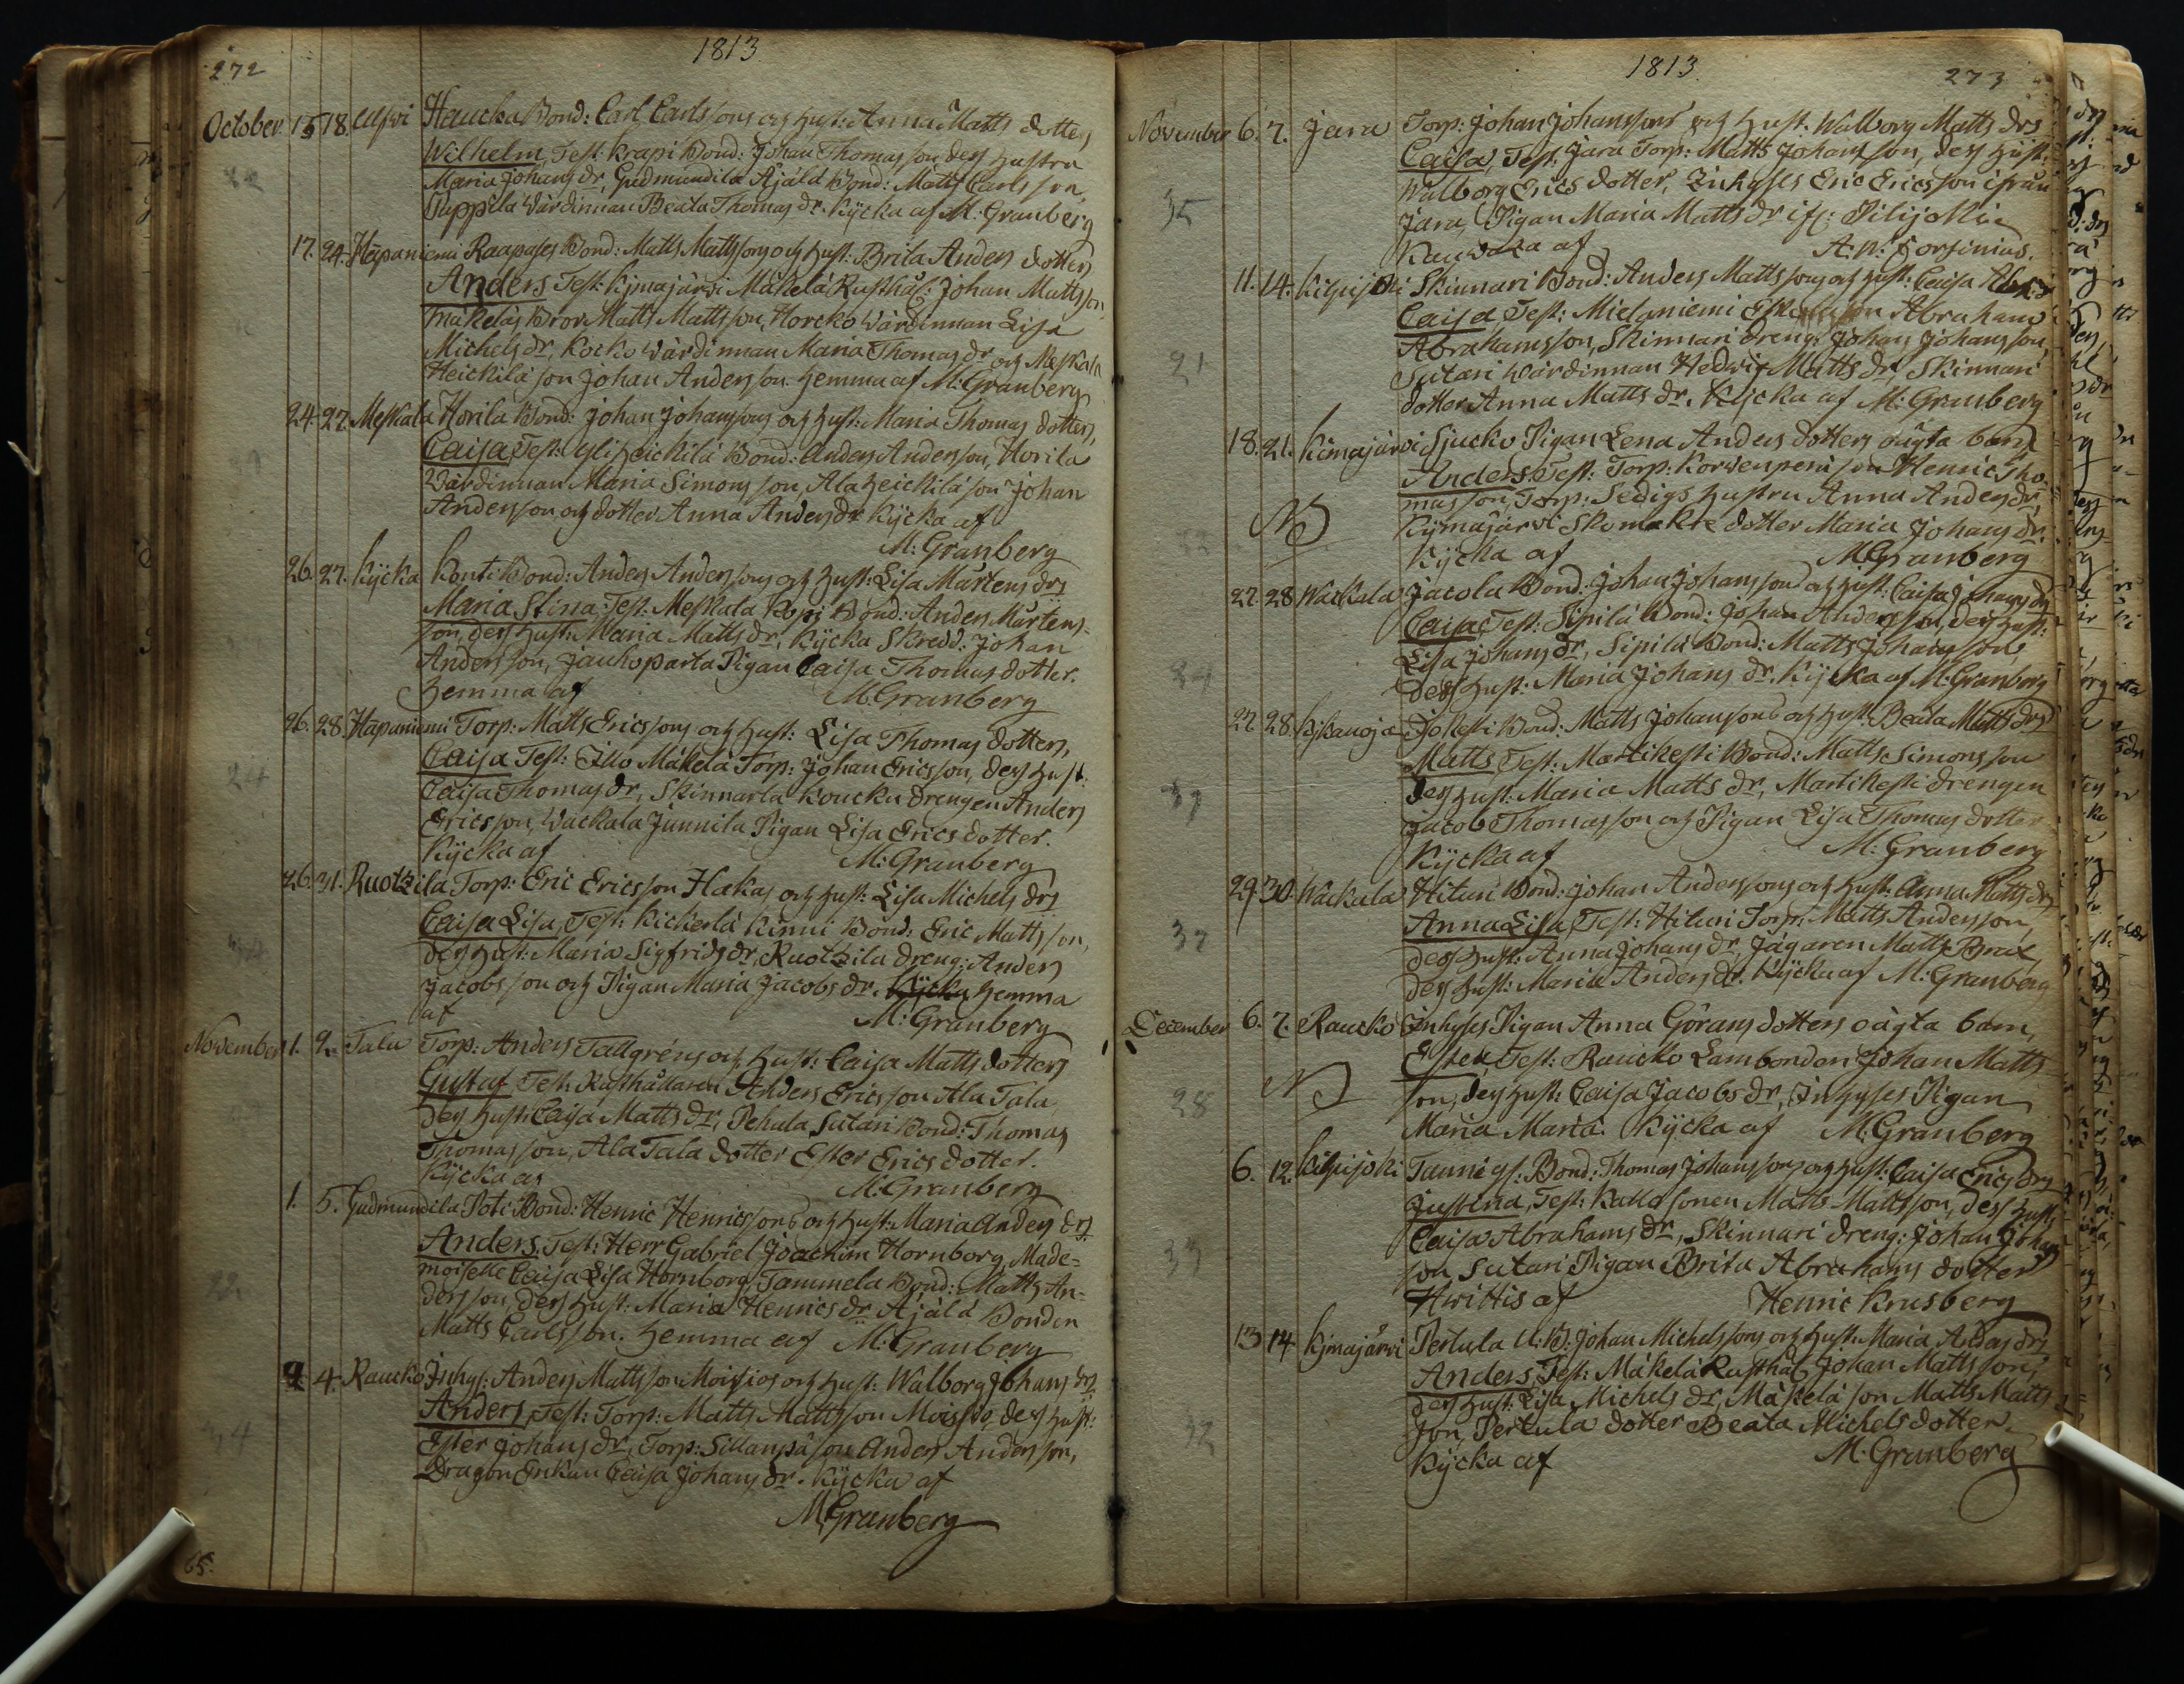 272
1813
October 15 18. Haucka Bond: Carl Carlssons och Hust: Anna Matts dotters
Wilhelm, Test: Krapi Bond: Johan Thomasson, dess Hustru
Maria Johans dr, Gudmundila Äjälä Bond: Matts Carlsson,
Pappila Wärdinnan Beata Thomas dr. Kycka af M: Granberg
17. 24. Hapaniemi Raapases Bond: Matts Mattssons och Hust: Brita Anders dotters
Anders Test: Kimajärvi Mäkelä Rusthål: Johan Mattsson,
Mäkeläs Bror Matts Mattsson, Horcko Wärdinnan Lisa
Michels dr, Kocko Wärdinnan Maria Thomas dr och Meskala
Heickilä son Johan Andersson. Hemma af M: Granberg
24. 27. Meskala Horila Bond: Johan Johanssons och Hust: Maria Thomas dotters,
Caisa, Test: Yliheickilä Bond: Anders Andersson, Horila
Wärdinnan Maria Simons son, Alaheickilä son Johan
Andersson och dotter Anna Anders dr Kycka af
M: Granberg
26. 27. Kycka Kont: Bond: Anders Anderssons och Hust: Lisa Mårtens drs
Maria Stina. Test: Meskala Bond: Anders Mårtens-
son, dess Hust: Maria Matts dr, Kycka Skredd: Johan
Andersson, Jaukoparta Pigan Caisa Thomas dotter.
Hemma af M: Granberg
26. 28. Hapaniemi Torp: Matts Ericssons och Hust: Lisa Thomas dotters,
Caisa Test: Illo Mäkelä Torp: Johan Ericsson, dess Hust:
Caisa Thomas dr, Skinnarla Koucku drengen Anders
Ericsson, Wackala Junnila Pigan Lisa Erics dotter.
Kycka af M: Granberg
26. 31. Ruotzila Torp: Eric Ericsson Hakas och Hust: Lisa Michels drs
Caisa Lisa, Test: Kickerlä Kinni Bond: Eric Mattsson,
dess Hust: Maria Sigfrids dr, Ruotzila dreng: Anders
Jacobsson och Pigan Maria Jacobs dr. Kycka Hemma
af M: Granberg
November 1. 2. Tala Torp: Anders Tallgréns och Hust: Caisa Matts dotters
Gustaf Test: Rusthållaren Anders Ericsson Ala Tala
dess Hust: Caisa Matts dr, Pehula Sutari Bond: Thomas
Thomasson, Ala Tala dotter Ester Erics dotter.
Kycka af M: Granberg
1. 5. Gudmundila Poti Bond: Henric Henricssons och Hust: Maria Anders drs
Anders, Test: Herr Gabriel Joachim Hornborg, Made=
moiselle Caisa Lisa Hornborg, Tammela Bond: Matts An=
dersson, dess Hust: Maria Henrics dr Äjälä Bonden
Matts Carlsson. Hemma af M: Granberg
4. Raucko Inhys: Anders Mattsson Moisios och Hust: Walborg Johans drs
Anders, Test: Torp: Matts Mattsson Moisio, dess Hust:
Ester Johans dr, Torp: Sillanpä son Anders Andersson,
Dragon Enkan Caisa Johans dr. Kycka af
M: Granberg
65.
1813
273
November 6. 7. Jara Torp: Johan Johanssons och Hust: Walborg Matts drs
Caisa, Test: Jara Torp: Matts Johansson, dess Hust:
Walborg Erics dotter, Inhyses Eric Ericsson ifrån
Jara, Pigan Maria Matts dr
af
11. 14. Kilpijoki Skinnari Bond: Anders Mattssons och Hust: Caisa
Caisa, Test: Abraham
Abrahamsson, Skinnari dreng: Johan Johansson,
Sutari Wärdinnan Hedwig Matts dr, Skinnari
dotter Anna Matts dr. Kycka af M: Granberg
18. 21. Kimajärvi Sjucko Pigan Lena Anders dotters oägta barn
Anders. Test: Torp: Korwenpeni son Henric Tho-
masson, Torp: Sedigs Hustru Anna Anders dr,
NB Kymajärvi Skomakre dotter Maria Johans dr.
Kycka af M: Granberg
27. 28. Wackala Jacola Bond: Johan Johansson och Hust: Caisa Johans drs
Caisa, Test: Sipilä Bond: Johan Andersson, dess Hust:
Lisa Johans dr, Sipilä Bond: Matts Johansson,
dess Hust: Maria Johans dr. Kycka af M: Granberg
27. 28. Kiskanoja Bond: Matts Johanssons och Hust: Beata Matts drs
Matts Test: Martikesti Bond: Matts Simonsson
dess Hust: Maria Matts dr, Martikesti drengen
Jacob Thomasson och Pigan Lisa Thomas dotter
Kycka af M: Granberg
29. 30. Wackala Hituri Bond: Johan Anderssons och Hust: Anna Matts drs
Anna Lisa, Test: Hituri Torp: Matts Andersson,
dess Hust: Anna Johans dr, Jägaren Matts
dess Hust: Maria Anders dr. Kycka af M: Granberg
December 6. 7. Raucko Inhyses Pigan Anna Görans dotters oägta barn,
Ester, Test: Raucko Lambonden Johan Matts
NB son, dess Hust: Caisa Jacobs dr, Inhyses Pigan
Maria Maria. Kycka af M: Granberg
6. 12. Kilpijoki Bond: Thomas Johanssons och Hust: Caisa Erics drs
Justina, Test: Kallo sonen Matts Mattsson, dess Hust:
Caisa Abrahams dr, Skinnari dreng: Johan Johans
son, Sutari Pigan Brita Abrahams dotter
Hwittis af Henric Krusberg
13 14 Kjmajärvi Pertula Johan Michelssons och Hust: Maria Anders drs
Anders, Test: Mäkelä Rusthål: Johan Mattsson,
dess Hust: Lisa Michels dr, Mäkelä son Matts Matts
son, Pertula dotter Beata Michels dotter.
Kycka af M: Granberg